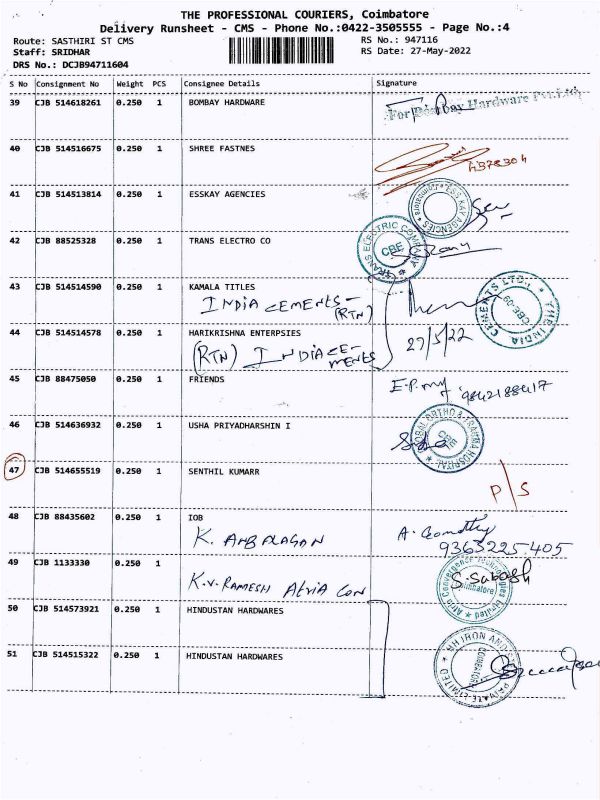 THE PROFESSIONAL COURIERS, Coimbatore
Delivery Runsheet - CMS - Phone No.:0422-3505555 - Page No.:4
Route: SASTHIRI ST CMS RS No.: 947116
Staff: SRIDHAR RS Date: 27-May-2022
DRS No.: DCJB94711604
S No Consignment No Weight PCS Consignee Details Signature
39 CJB 514618261 0.250 1 BOMBAY HARDWARE
For Bombay Hardware Pvt.Ltd.
40 CJB 514516675 0.250 1 SHREE FASTNES
41 CJB 514513814 0.250 1 ESSKAY AGENCIES
ESS KAY AGENCIES
42 CJB 88525328 0.250 1 TRANS ELECTRO CO
TRANS ELECTRIC COMPANY CBE
43 CJB 514514590 0.250 1 KAMALA TITLES
INDIA CEMENTS - (RTN)
THE INDIA CEMENTS LTD. CBE-09
44 CJB 514514578 0.250 1 HARIKRISHNA ENTERPSIES
(RTN) INDIA CE-
MENTS
27/5/22
45 CJB 88475050 0.250 1 FRIENDS
9842188417
46 CJB 514636932 0.250 1 USHA PRIYADHARSHIN I
GLOBAL ORTHO & TRAUMA HOSPITAL
47 CJB 514655519 0.250 1 SENTHIL KUMARR
P/S
48 CJB 88435602 0.250 1 IOB
K. ANBALAGAN
9363225405
49 CJB 1133330 0.250 1
K.V. RAMESH ATRIA CON
S. Subash
Coimbatore
50 CJB 514573921 0.250 1 HINDUSTAN HARDWARES
51 CJB 514515322 0.250 1 HINDUSTAN HARDWARES
COIMBATORE
PRIVATE LIMITED